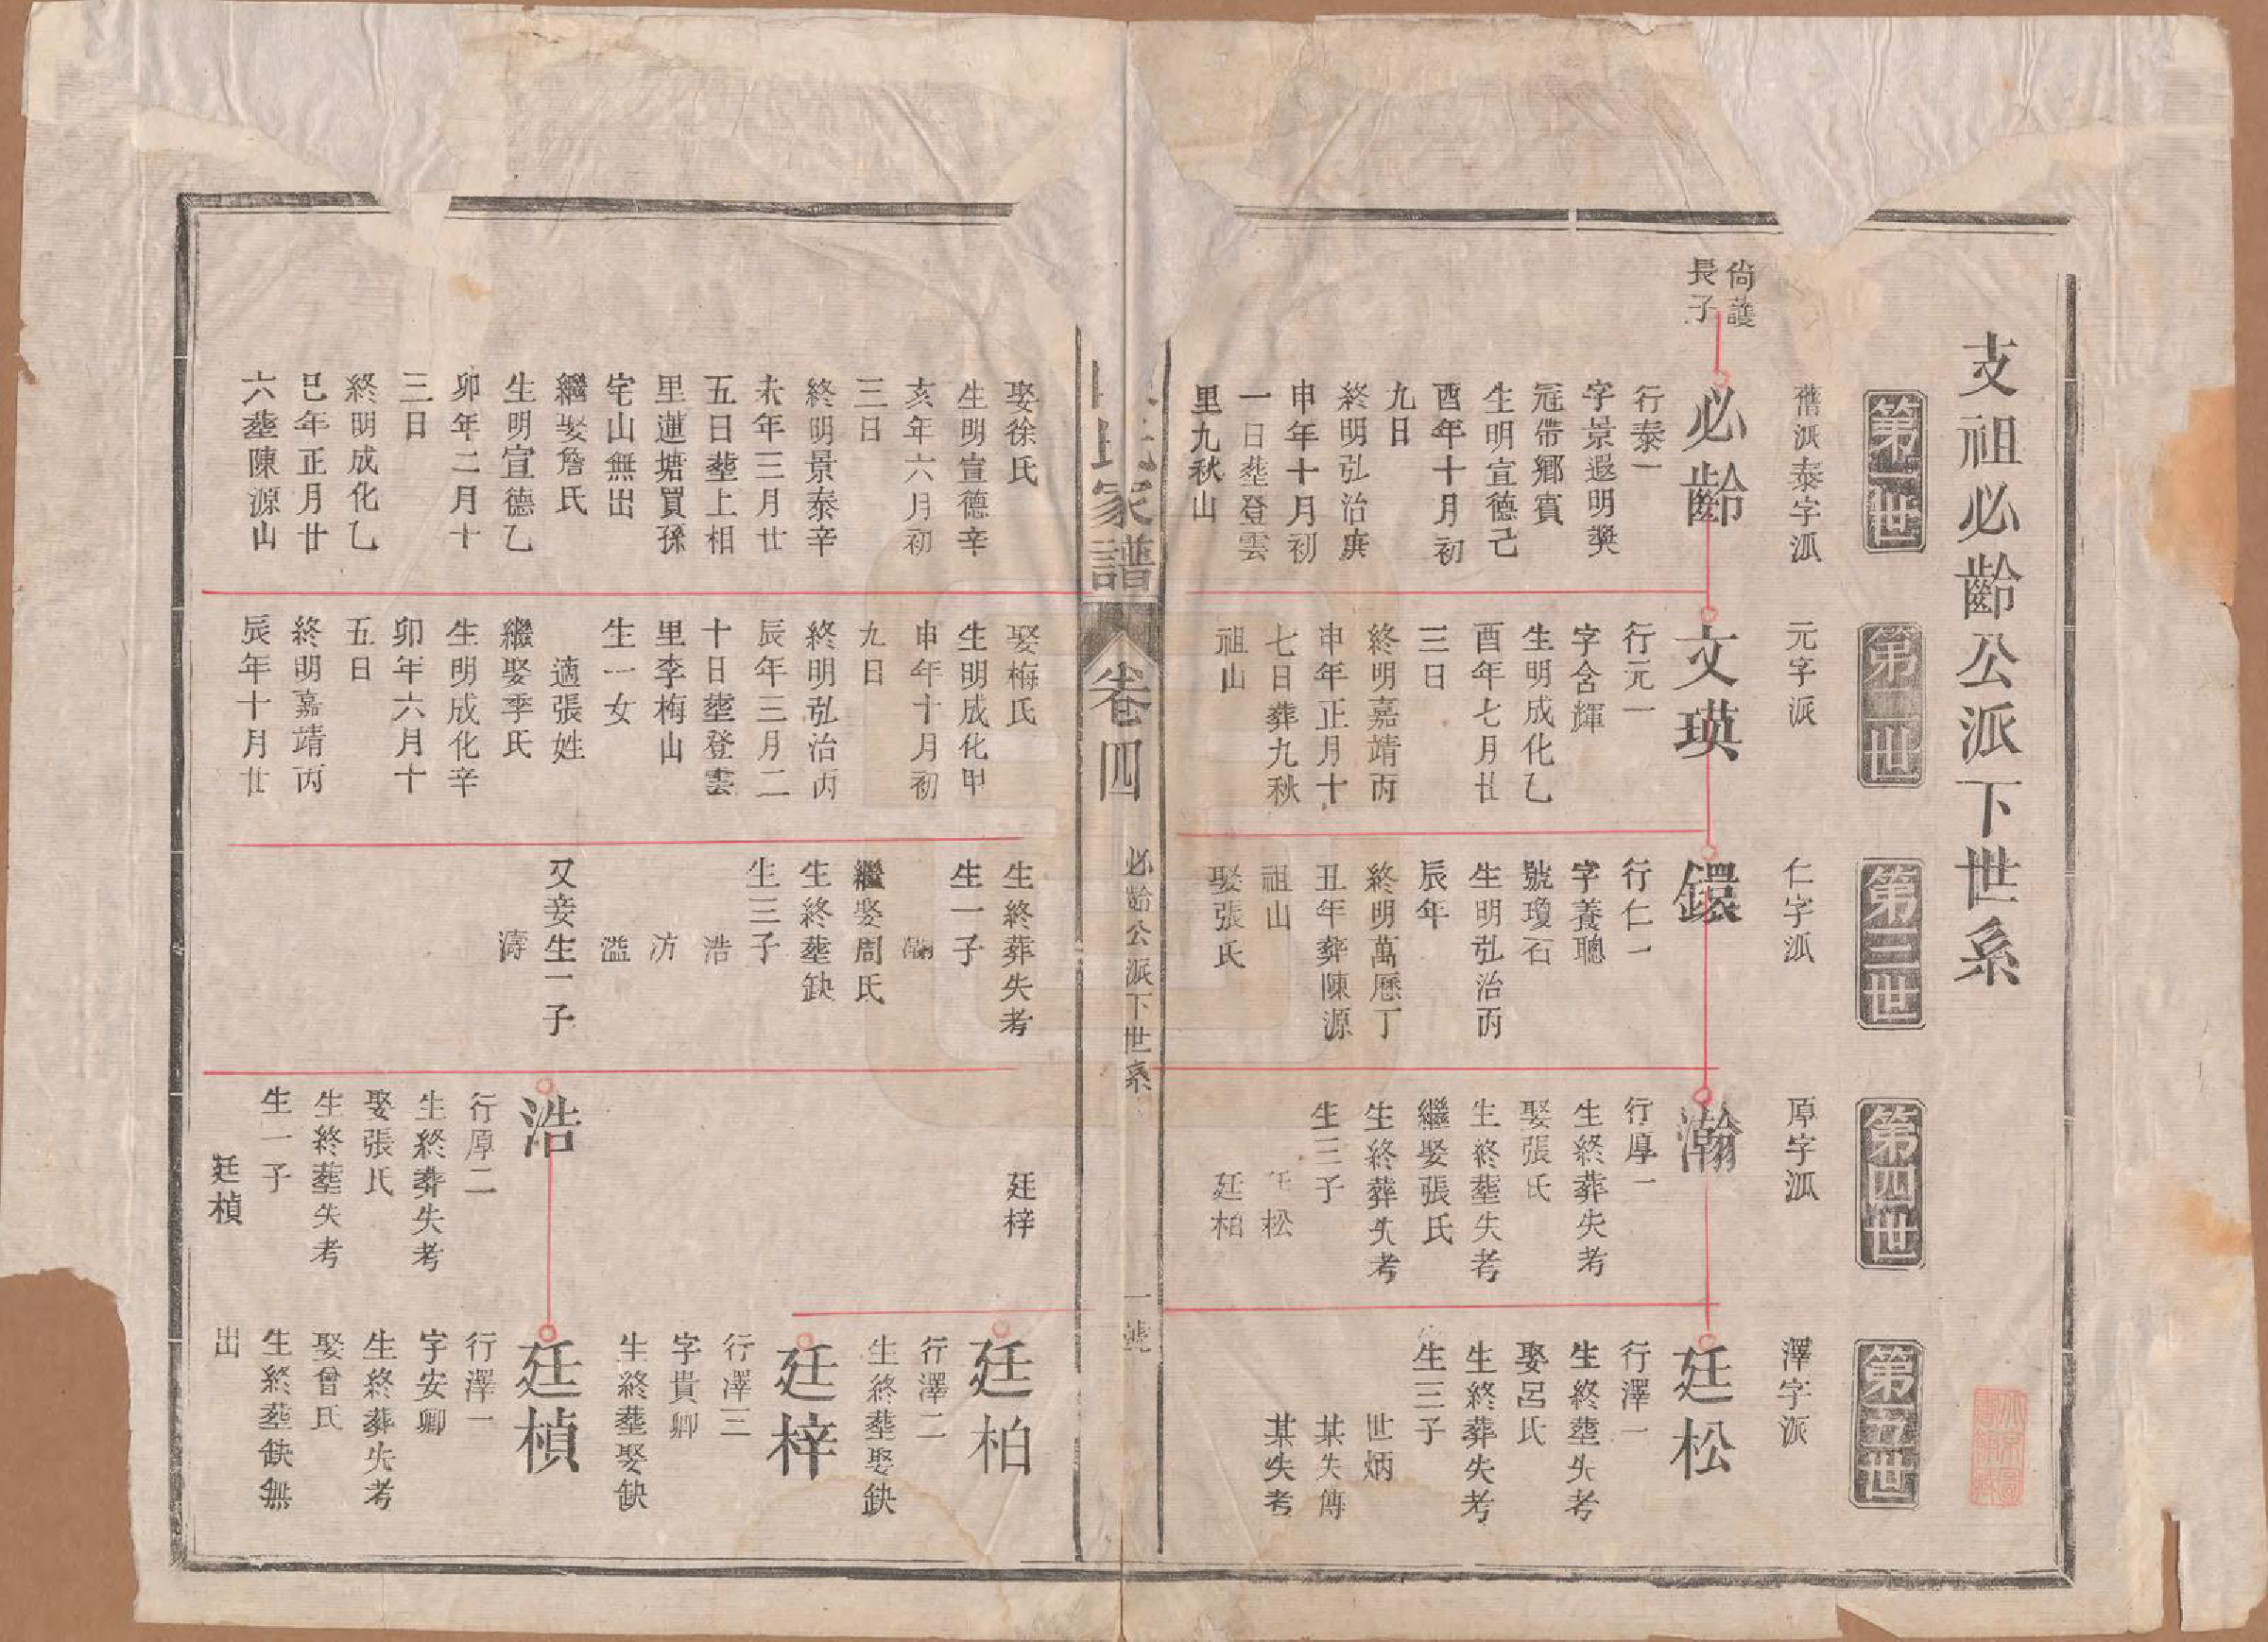 支祖必齡公派下世系
第一世
舊派泰字派
尙護
長子
必齡
行泰一
字景遐明獎
冠帶鄉賓
生明宣德己
酉年十月初
九日
終明弘治庚
申年十月初
一日塟登雲
里九秋山
娶徐氏
生明宣德辛
亥年六月初
三日
終明景泰辛
未年三月廿
五日塟上相
里蓮塘買孫
宅山無出
繼娶詹氏
生明宣德乙
卯年二月十
三日
終明成化乙
巳年正月廿
六塟陳源山
第二世
元字派
文瑛
行元一
字含輝
生明成化乙
酉年七月廿
三日
終明嘉靖丙
申年正月十
七日葬九秋
祖山
娶梅氏
生明成化甲
申年十月初
九日
終明弘治丙
辰年三月二
十日塟登雲
里李梅山
生一女
適張姓
繼娶季氏
生明成化辛
卯年六月十
五日
終明嘉靖丙
辰年十月廿
第三世
仁字派
鐶
行仁一
字養聰
號瓊石
生明弘治丙
辰年
終明萬曆丁
丑年葬陳源
祖山
娶張氏
生終葬失考
生一子
瀚
繼娶周氏
生終塟缺
生三子
浩
汸
溢
又妾生一子
濤
第四世
原字派
瀚
行厚一
生終葬失考
娶張氏
生終塟失考
繼娶張氏
生終葬失考
生三子
廷松
廷柏
廷梓
浩
行厚二
生終葬失考
娶張氏
生終塟失考
生一子
廷楨
第五世
澤字派
廷松
行澤一
生終塟失考
娶呂氏
生終葬失考
生三子
世炳
某失傳
某失考
廷柏
行澤二
生終塟娶缺
廷梓
行澤三
字貴卿
生終塟娶缺
廷楨
行澤一
字安卿
生終葬失考
娶曾氏
生終塟缺無
出
氏家譜
卷四
必齡公派下世系
一號